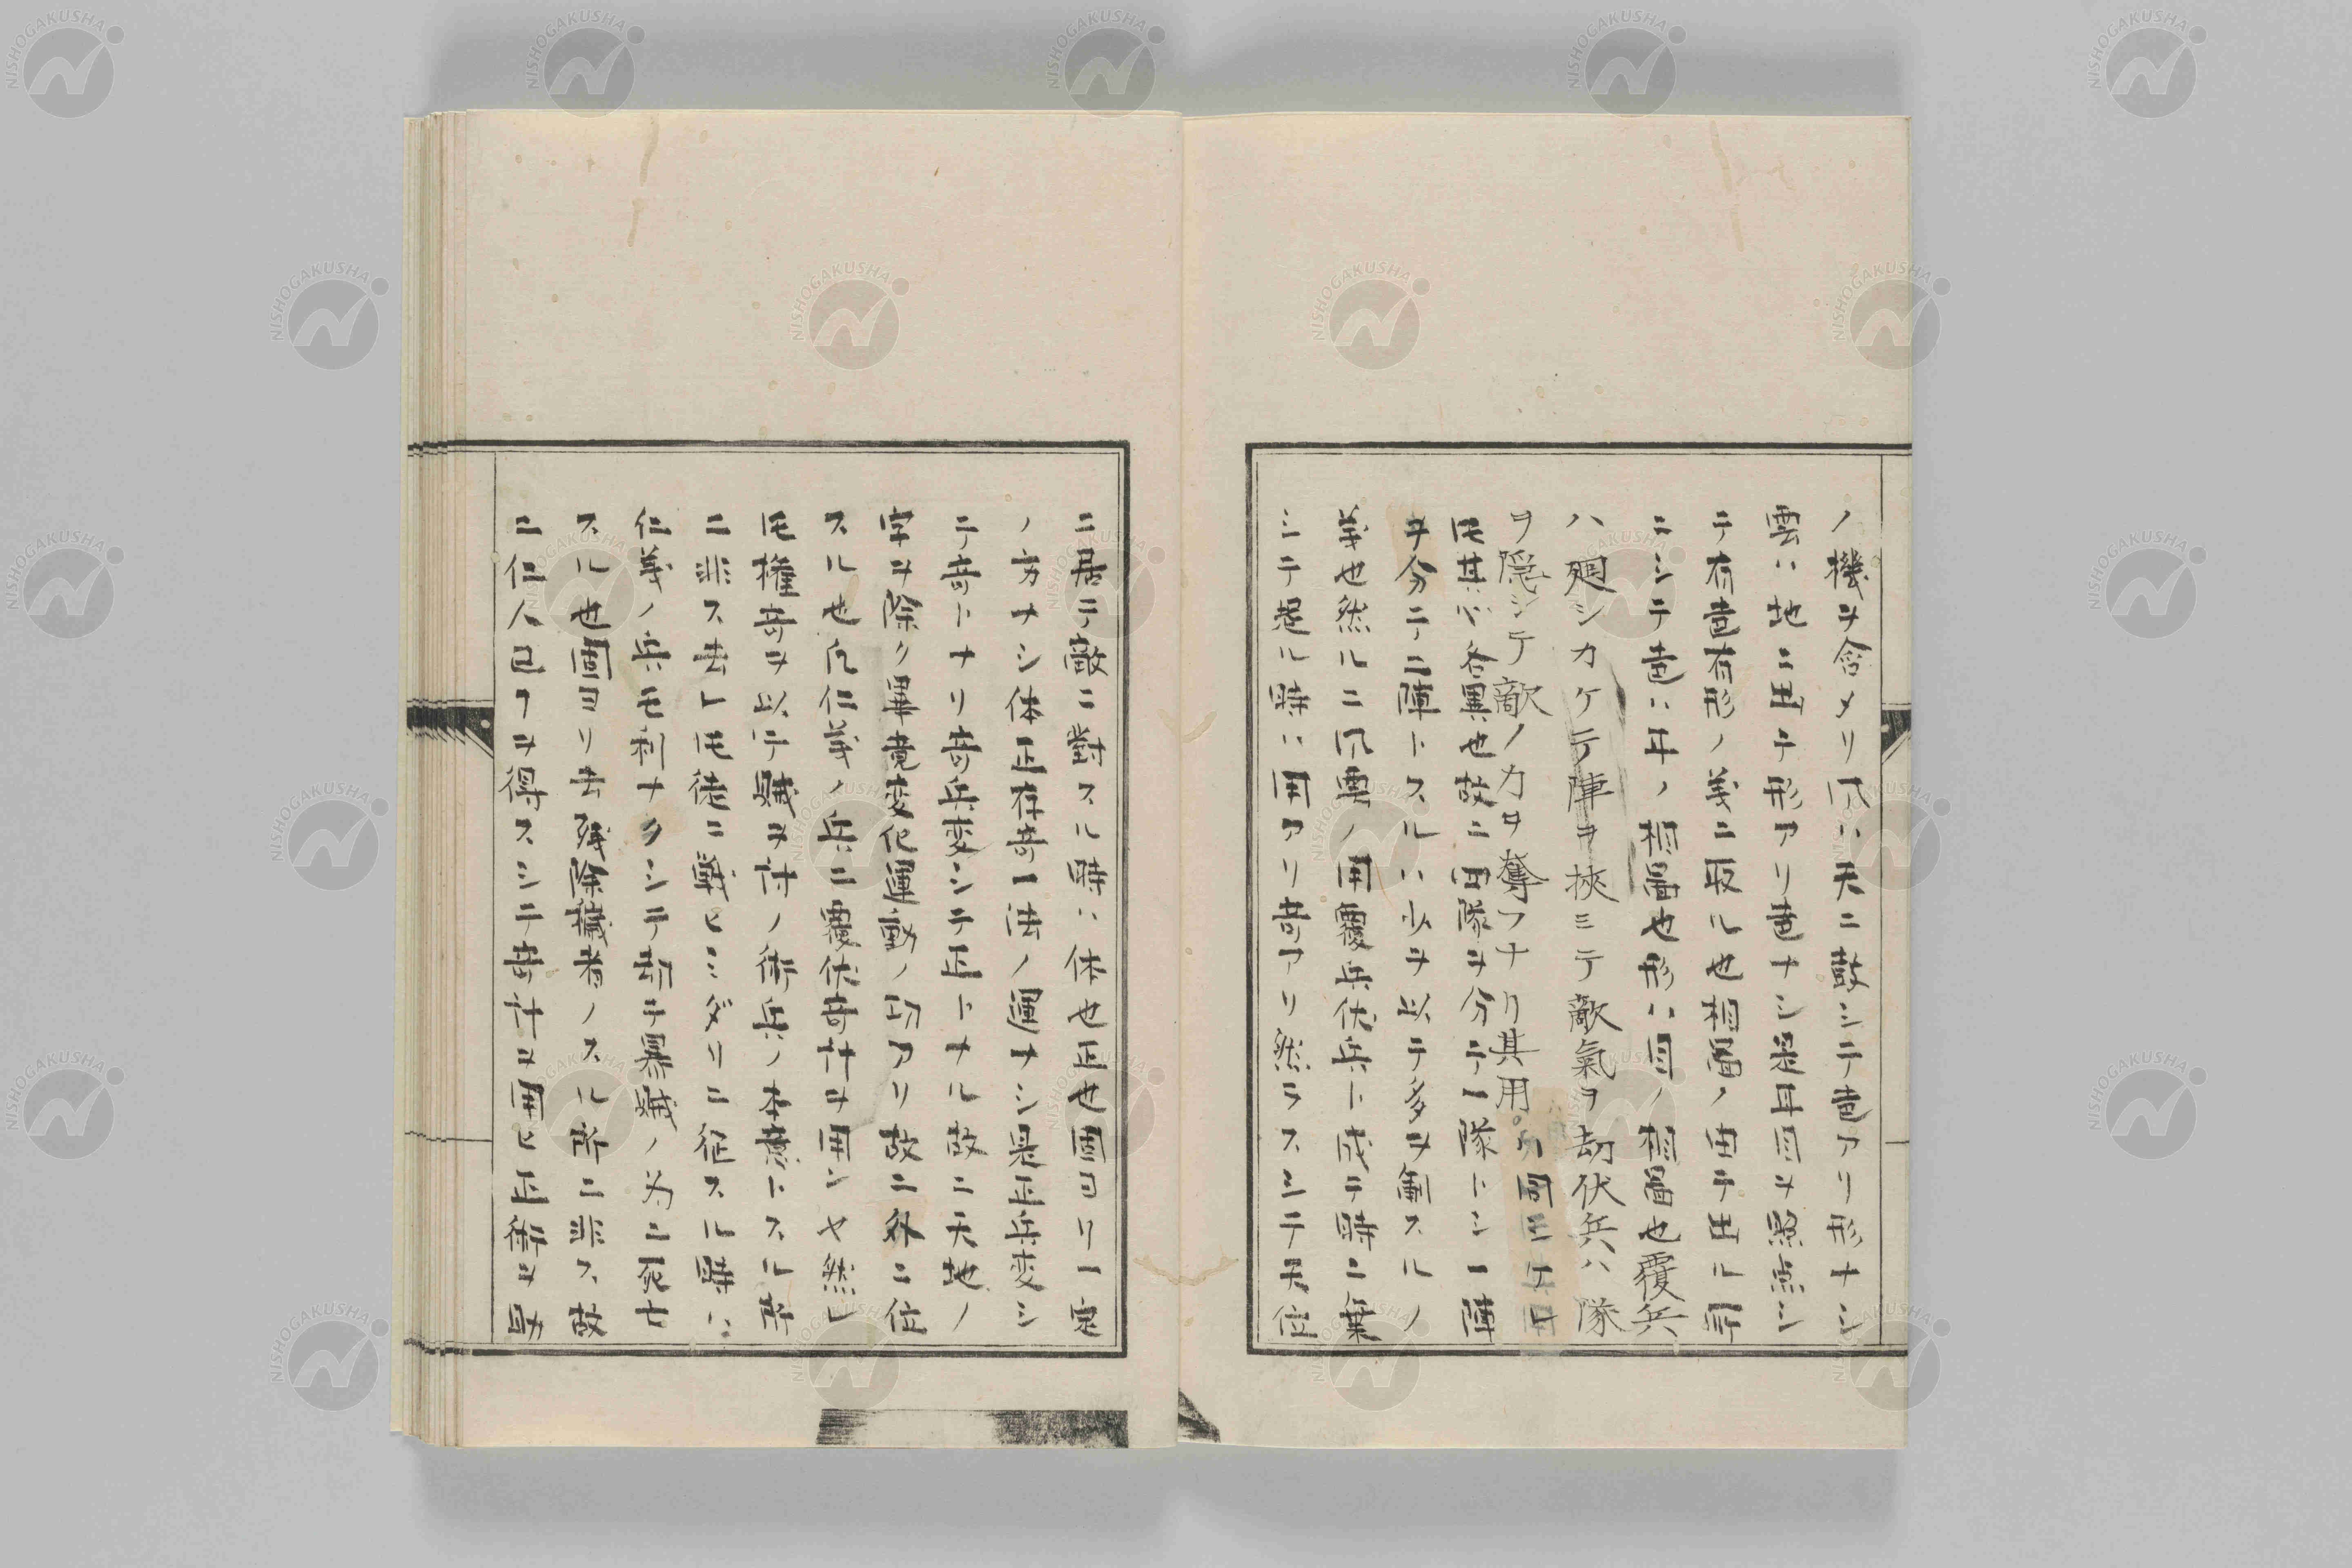 ノ機ヲ含メリ风ハ天ニ鼓シテ竜アリ形ナシ
雲ハ地ニ出テ形アリ竜ナシ是耳目ヲ懸点シ
テ有竜有形ノ義ニ取ル也相畐ノ由テ出ル所
ニシテ竜ハ耳ノ相畐也形ハ目ノ相畐也覆兵
ハ廻シカケテ陣ヲ挾ミテ敵氣ヲ劫伏兵ハ隊
ヲ隠シテ敵ノ力ヲ奪フナリ其用
同
𪜈其心各異也故ニ四隊ヲ分テ一隊トシ一陣
ヲ分テ二陣トスルハ少ヲ以テ多ヲ制スルノ
義也然ルニ风雲ノ用覆兵伏兵ト成テ時ニ
シテ是ル時ハ用アリ竒アリ然ラスシテ天位
ニ居テ敵ニ對スル時ハ体也正也固ヨリ一定
ノ方ナシ体正存竒一法ノ運ナシ是正兵変シ
テ竒トナリ竒兵変シテ正トナル故ニ天地ノ
字ヲ除リ畢竟変化運動ノ功アリ故ニ外ニ位
スル也凡仁義ノ兵ニ覆伏竒計ヲ用シヤ然レ
𪜈權竒ヲ以テ賊ヲ討ノ術兵ノ本意トスル所
ニ非ス去レ𪜈徒ニ戦ヒニ従スル時ハ
仁義ノ兵モ利ナクシテ却テ暴賊ノ为ニ死亡
スル也固ヨリ去残除穢者ノスル所ニ非ス故
ニ仁人已ヿヲ得スシテ竒計ヲ用ヒ正術ヲ助
NISHOGAKUSHA